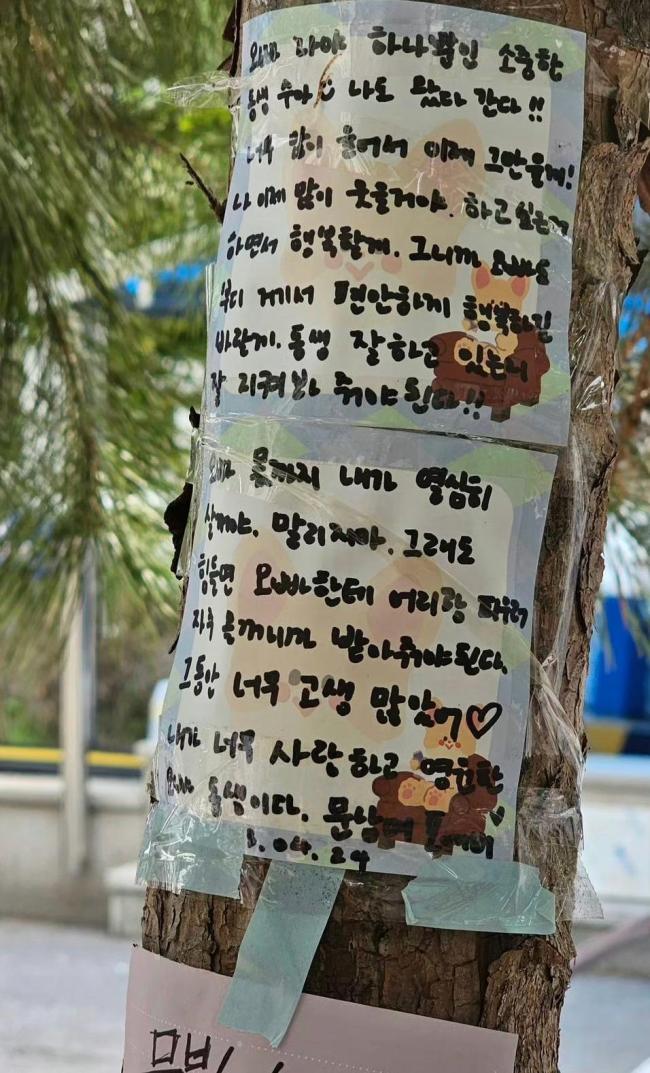 오빠 나야 하나뿐인 소중한
동생 수아 나도 왔다 간다!!
너무 많이 울어서 이제 그만울게!
나 이제 많이 웃을거야. 하고싶은거
하면서 행복할게. 그니까 오빠도
부디 거기서 편안하게 행복하길
바랄게. 동생 잘하고 있는지
잘 지켜봐 줘야된다!!
오빠 몫까지 내가 열심히
살거야. 말리지마. 그래도
힘들면 오빠한테 어리광 피우러
자주 올꺼니까 받아줘야된다.
그동안 너무 고생 많았어♡
내가 너무 사랑하고 영원한
오빠 동생이다.
04.24